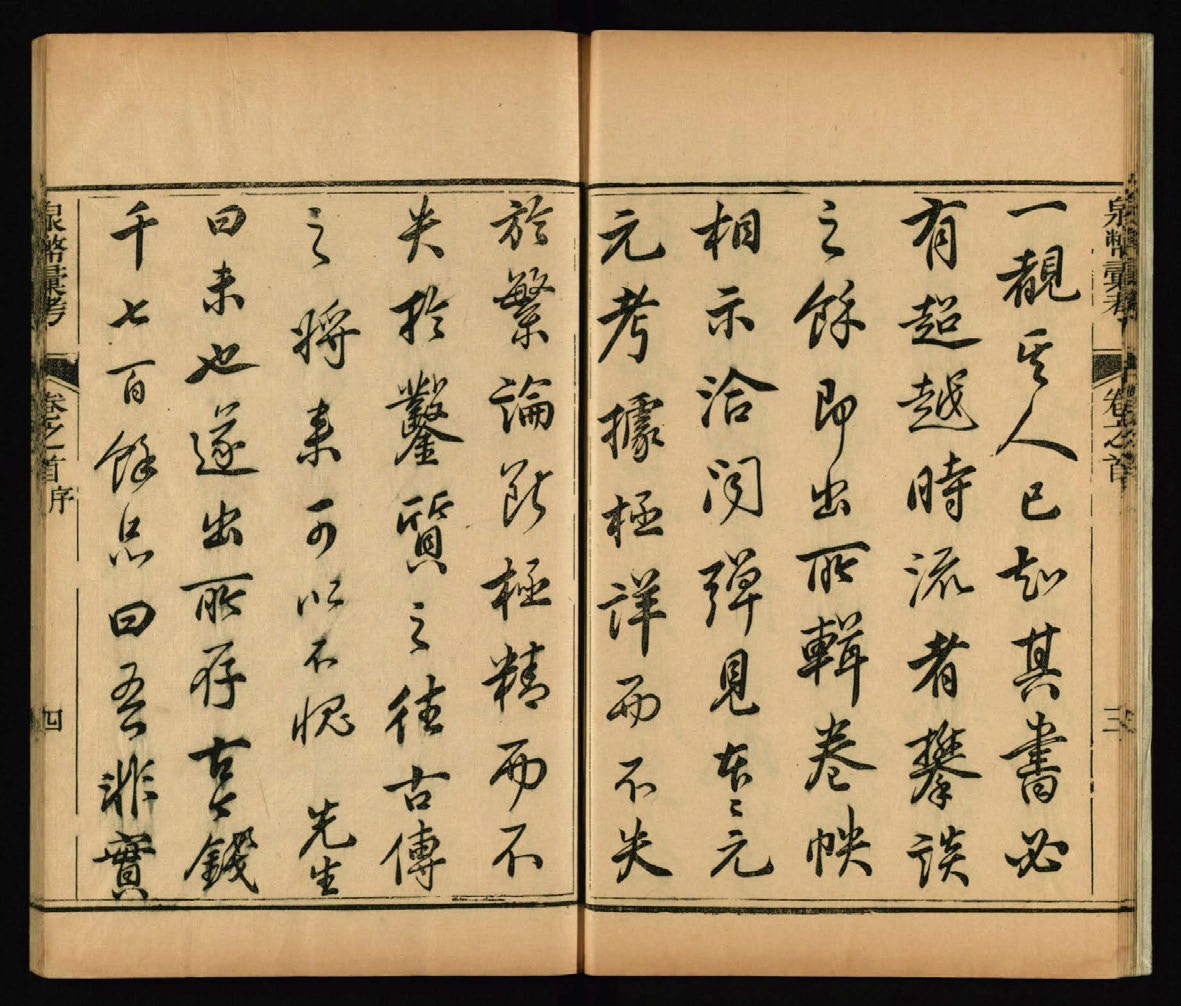 泉幣彙考 卷之首 三
一覩其人已知其書必
有超越時流者攀談
之餘即出所輯卷帙
相示洽聞彈見本〻元
元考據極詳而不失
於繁論斷極精而不
失於鑿質之往古傳
之將來可以不愧 先生
曰未也遂出所存古錢
千七百餘品曰吾非實
泉幣彙考 卷之首 序 四